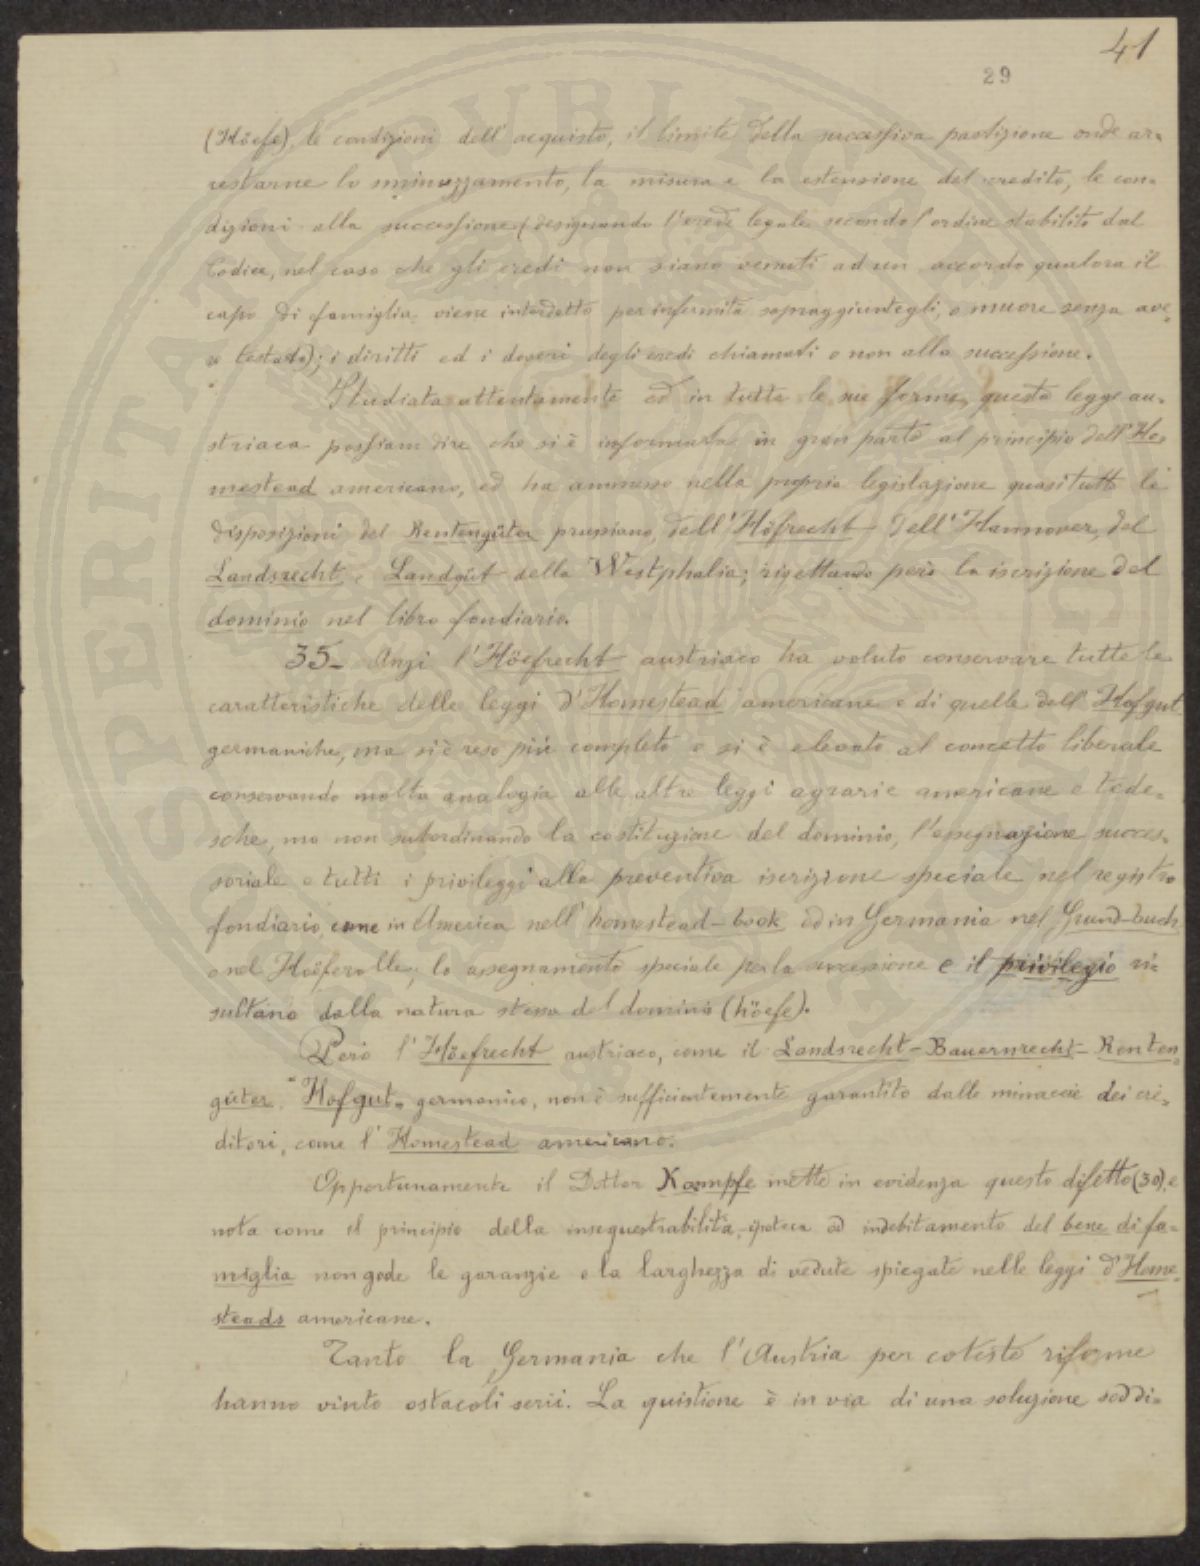 41
29
(Höefe), le condizioni dell'acquisto, il limite della successiva partizione onde ar-
restarne lo sminuzzamento, la misura e la estensione del credito, le con-
dizioni alla successione (designando l'erede legale secondo l'ordine stabilito dal
Codice, nel caso che gli eredi non siano venuti ad un accordo qualora il
capo di famiglia viene interdetto per infermità sopraggiuntegli, o muore senza ave-
re testato); i diritti ed i doveri degli eredi chiamati o non alla successione.
Studiata attentamente ed in tutte le sue forme, questa legge au-
striaca possiam dire che si è informata in gran parte al principio dell'Ho-
mestead americano, ed ha ammesso nella propria legislazione quasi tutte le
disposizioni del Rentengüter prussiano, dell'Höfrecht dell'Hannover, del
Landsrecht, e Landgüt della Westphalia; rigettando però la iscrizione del
dominio nel libro fondiario.
35- Anzi l'Höefrecht austriaco ha voluto conservare tutte le
caratteristiche delle leggi d'Homestead americane e di quelle dell'Hofgut
germaniche, ma si è reso più completo e si è elevato al concetto liberale
conservando molta analogia alle altre leggi agrarie americane e tede-
sche, ma non subordinando la costituzione del dominio, l'assegnazione succes-
soriale e tutti i privileggi alla preventiva iscrizione speciale nel registro
fondiario, come in America nell'homestead-book, ed in Germania nel Grund-buch
o nel Höeferolle; lo assegnamento speciale per la successione e il privilegio ri-
sultano dalla natura stessa del dominio (höefe).
Però l'Höefrecht austriaco, come il Landsrecht-Bauernrecht-Renten-
güter-Hofgut- germanico, non è sufficientemente garantito dalle minaccie dei cre-
ditori, come l'Homestead americano.
Opportunamente il Dottor Kampfe mette in evidenza questo difetto (30), e
nota come il principio della insequestrabilità, ipoteca ed indebitamento del bene di fa-
miglia non gode le garanzie e la larghezza di vedute spiegate nelle leggi d'Home-
steads americane.
Tanto la Germania che l'Austria per coteste riforme
hanno vinto ostacoli serii. La quistione è in via di una soluzione soddi-